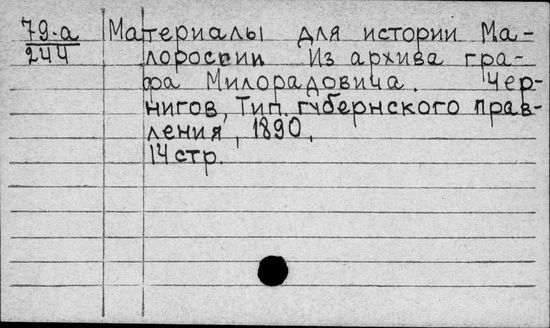 79-а Материалы для истории Ма-
244 лороссии Из архива гра-
фа Милорадовича. Чер-
нигов, Тип. губернского прав-
ления, 1890,
14 стр.